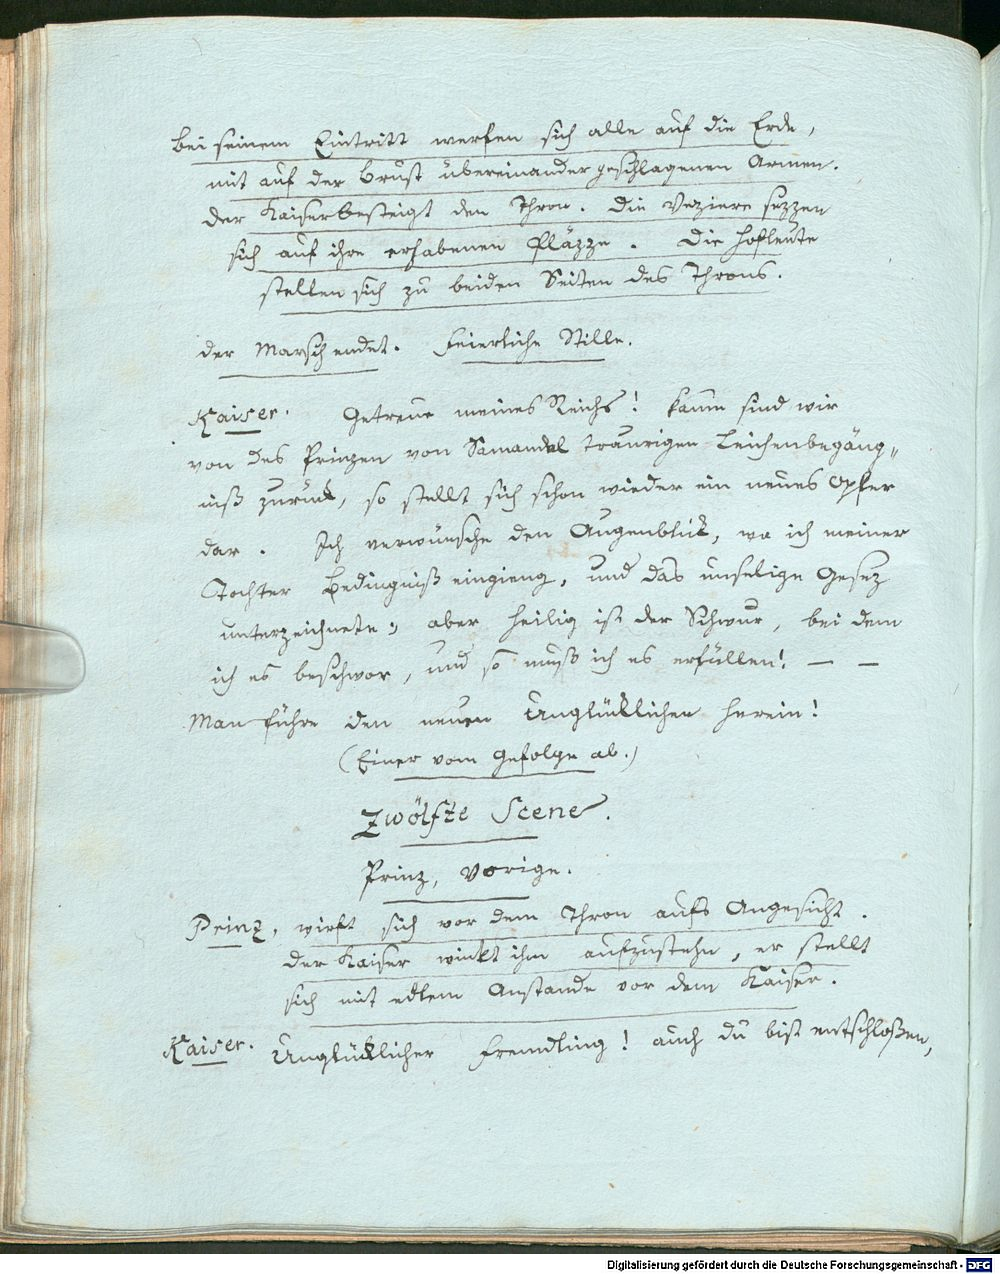 bei seinem Eintritt werfen sich alle auf die Erde,
mit auf der Brust übereinander geschlagenen Armen.
der Kaiser besteigt den Thron. Die Veziere sezzen
sich auf ihre erhabenen Pläzze. Die Hofleute
stellen sich zu beiden Seiten des Throns.
der Marsch endet. Feierliche Stille.
Kaiser. Getreue meines Reichs! kaum sind wir
von des Prinzen von Samandal traurigen Leichenbegäng„
niß zurück, so stellt sich schon wieder ein neues Opfer
dar. Ich verwünsche den Augenblick, wo ich meiner
Tochter Bedingniß eingieng, und das unselige Gesez
unterzeichnete; aber heilig ist der Schwur, bei dem
ich es beschwor, und so muß ich es erfüllen! — —
Man führe den neuen Unglücklichen herein!
(Einer vom Gefolge ab.)
Zwölfte Scene.
Prinz, Vorige.
Prinz, wirft sich vor dem Thron aufs Angesicht.
der Kaiser winkt ihm aufzustehn, er stellt
sich mit edlem Anstande vor dem Kaiser.
Kaiser. Unglücklicher Fremdling! auch du bist entschloßen,
Digitalisierung gefördert durch die Deutsche Forschungsgemeinschaft - DFG